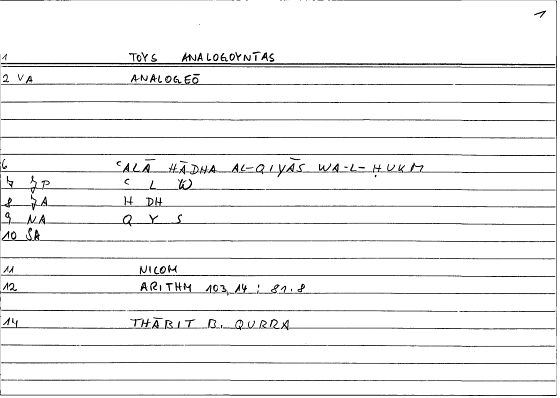 1
1 TOYS ANALOGOYNTAS
2 VA ANALOGEŌ
6 ʿALĀ HĀDHA AL-QIYĀS WA-L-ḤUKM
7 ʿ L
8 H DH
9 NA Q Y S
10 SA
11 NICOM
12 ARITHM 103,14 : 81.8
14 THĀBIT B. QURRA